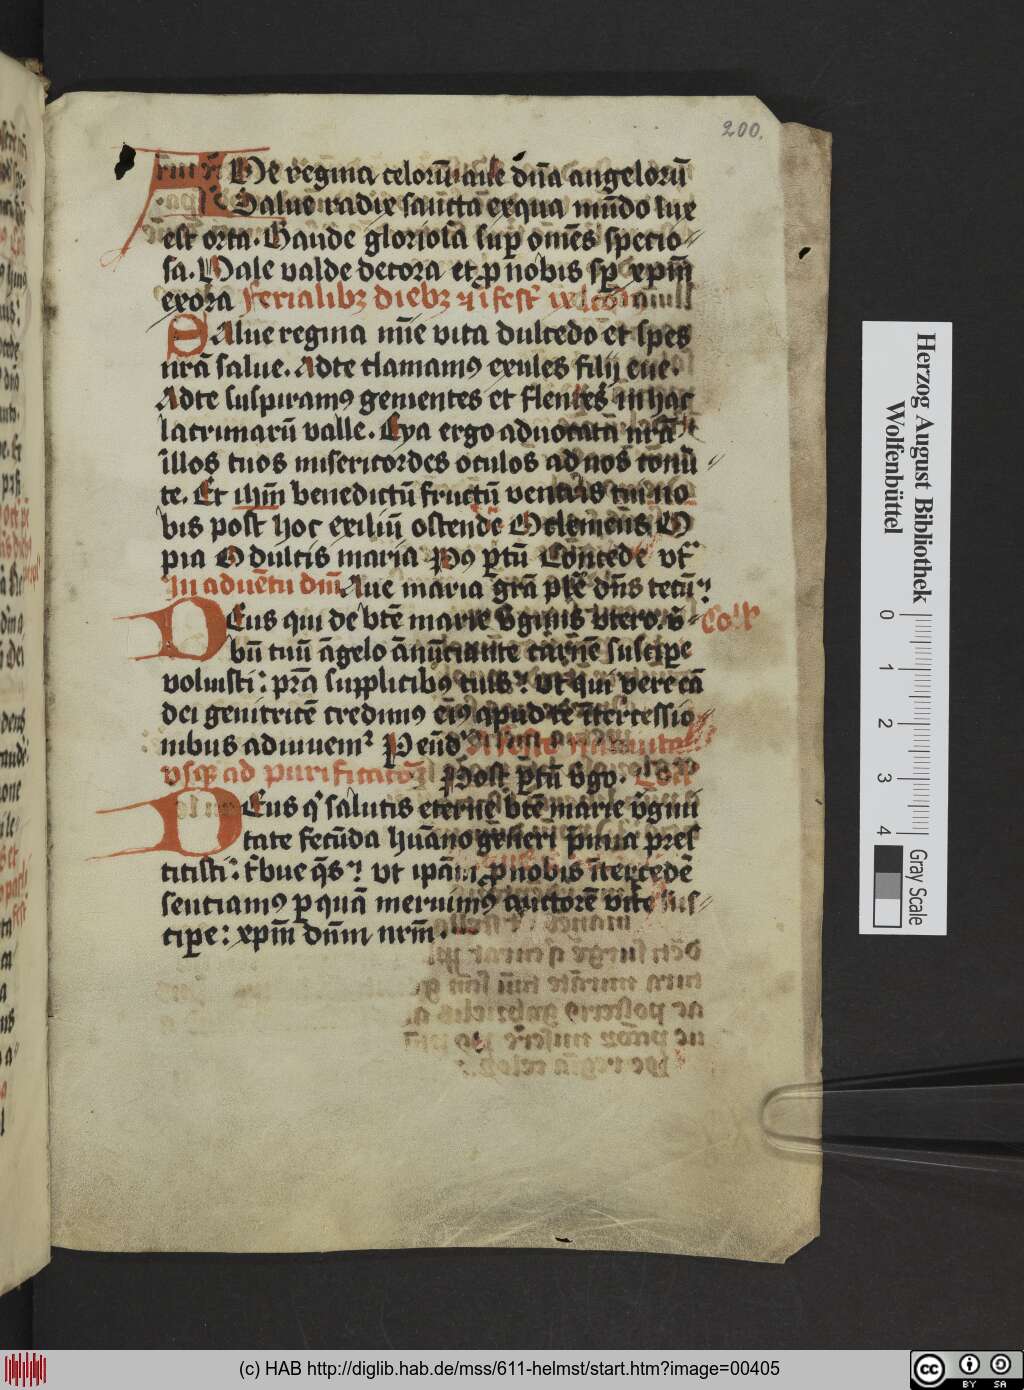 200.
AVe regina celorū aue dn̄a angelorū
Salue radix sancta exqua mūdo lux
est orta. Gaude gloriosa sup om̄es specio
sa. Vale valde decora et ꝓ nobis sꝑ xpm̄
exora ferialibꝫ diebꝫ
SAlue regina mie vita dulcedo et spes
nrā salue. Adte clamamꝰ exules filij eue.
Adte suspiramꝰ gementes et flentes in hac
lacrimarū valle. Eya ergo aduocata nrā
illos tuos misericordes oculos ad nos conū
te. Et ihm̄ benedictū fructū ventris tui no
bis post hoc exiliū ostende O clemens O
pia O dulcis maria Pꝰ ꝑtū Concede vt
In aduētu dn̄i Aue maria grā ple dn̄s tecū
DEus qui de bt̄e marie v̄ginis vtero v̄ Coll
bū tuū āgelo ānūciante carnē suscipe
voluisti: p̄ta supplicibꝰ tuis? vt qui vere eā
dei genitricē credimꝰ eiꝰ apud te ītercessio
nibus adiuuemr̄ P eūd
vsqꝫ ad purificatōꝫ Post ꝑtū v̄go. Coll
DEus qͥ salutis eterne bt̄e marie v̄gini
tate fecūda huāno generi p̄mia pres
titisti: tͥbue q̄s? vt ipām ꝓ nobis ītercedē
sentiamꝰ ꝑ quā meruimꝰ auctorē vite sus
cipe: xpm̄ dn̄m nrm̄.
Herzog August Bibliothek
Wolfenbüttel
0 1 2 3 4
Gray Scale
(c) HAB http://diglib.hab.de/mss/611-helmst/start.htm?image=00405
cc BY SA